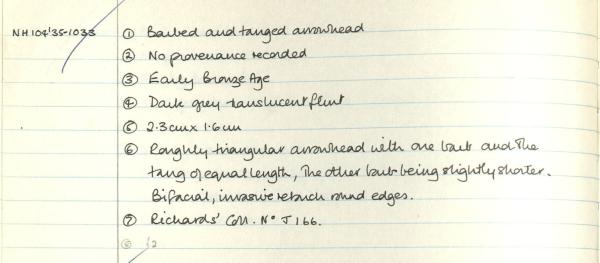 NH104'35-1033 ① Barbed and tanged arrowhead
② No provenance recorded
③ Early Bronze Age
④ Dark grey translucent flint
⑤ 2.3cm x 1.6cm
⑥ Roughly triangular arrowhead with one barb and the
tang of equal length, the other barb being slightly shorter.
Bifacial, invasive retouch round edges.
⑦ Richards' Coll. Nº J166.
⑧